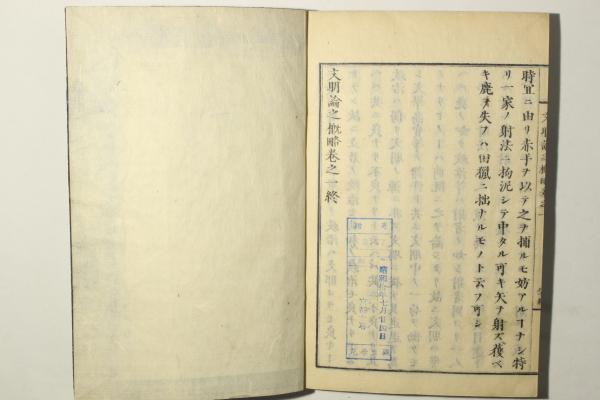 時宜ニ由リ赤手ヲ以テ之ヲ捕ルモ妨アルヿナシ特
リ一家ノ射法ニ拘泥シテ中タル可キ矢ヲ射ズ獲ベ
キ鹿ヲ失フハ田獵ニ拙ナルモノト云フ可シ
文明論之概略卷之一終
昭和
年七月廿四日